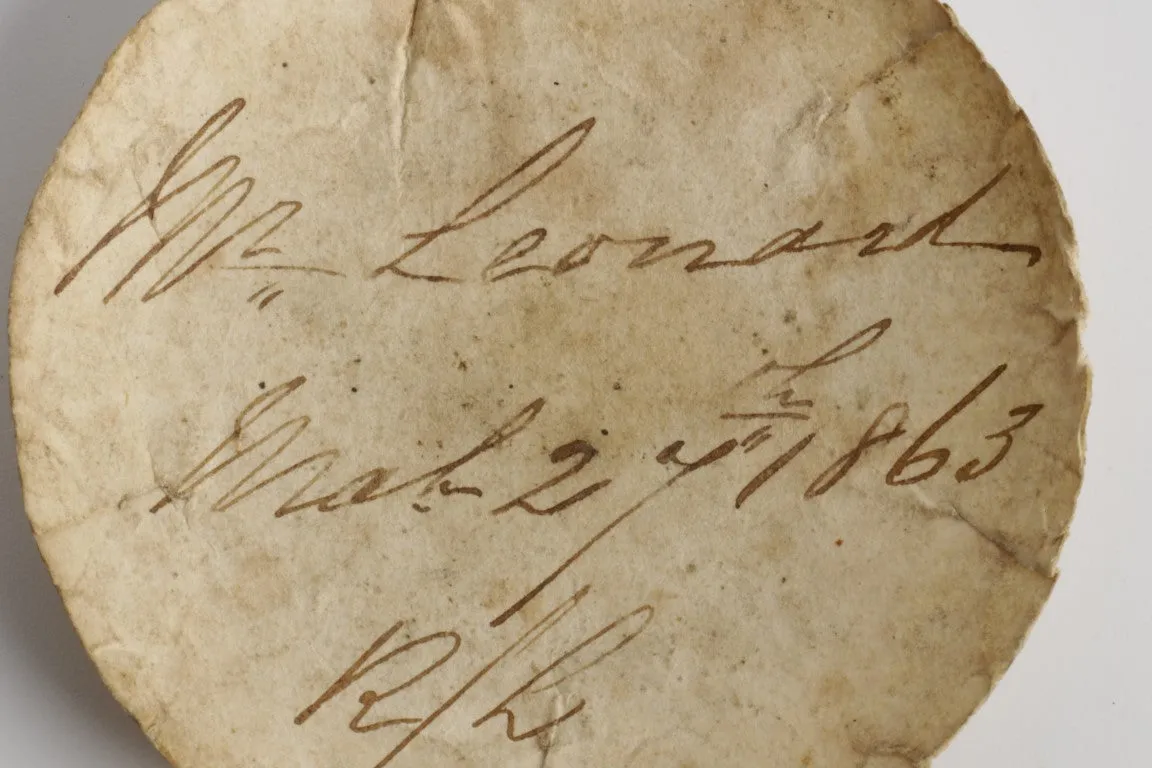 Mr Leonard
Mch 27th 1863
R/L